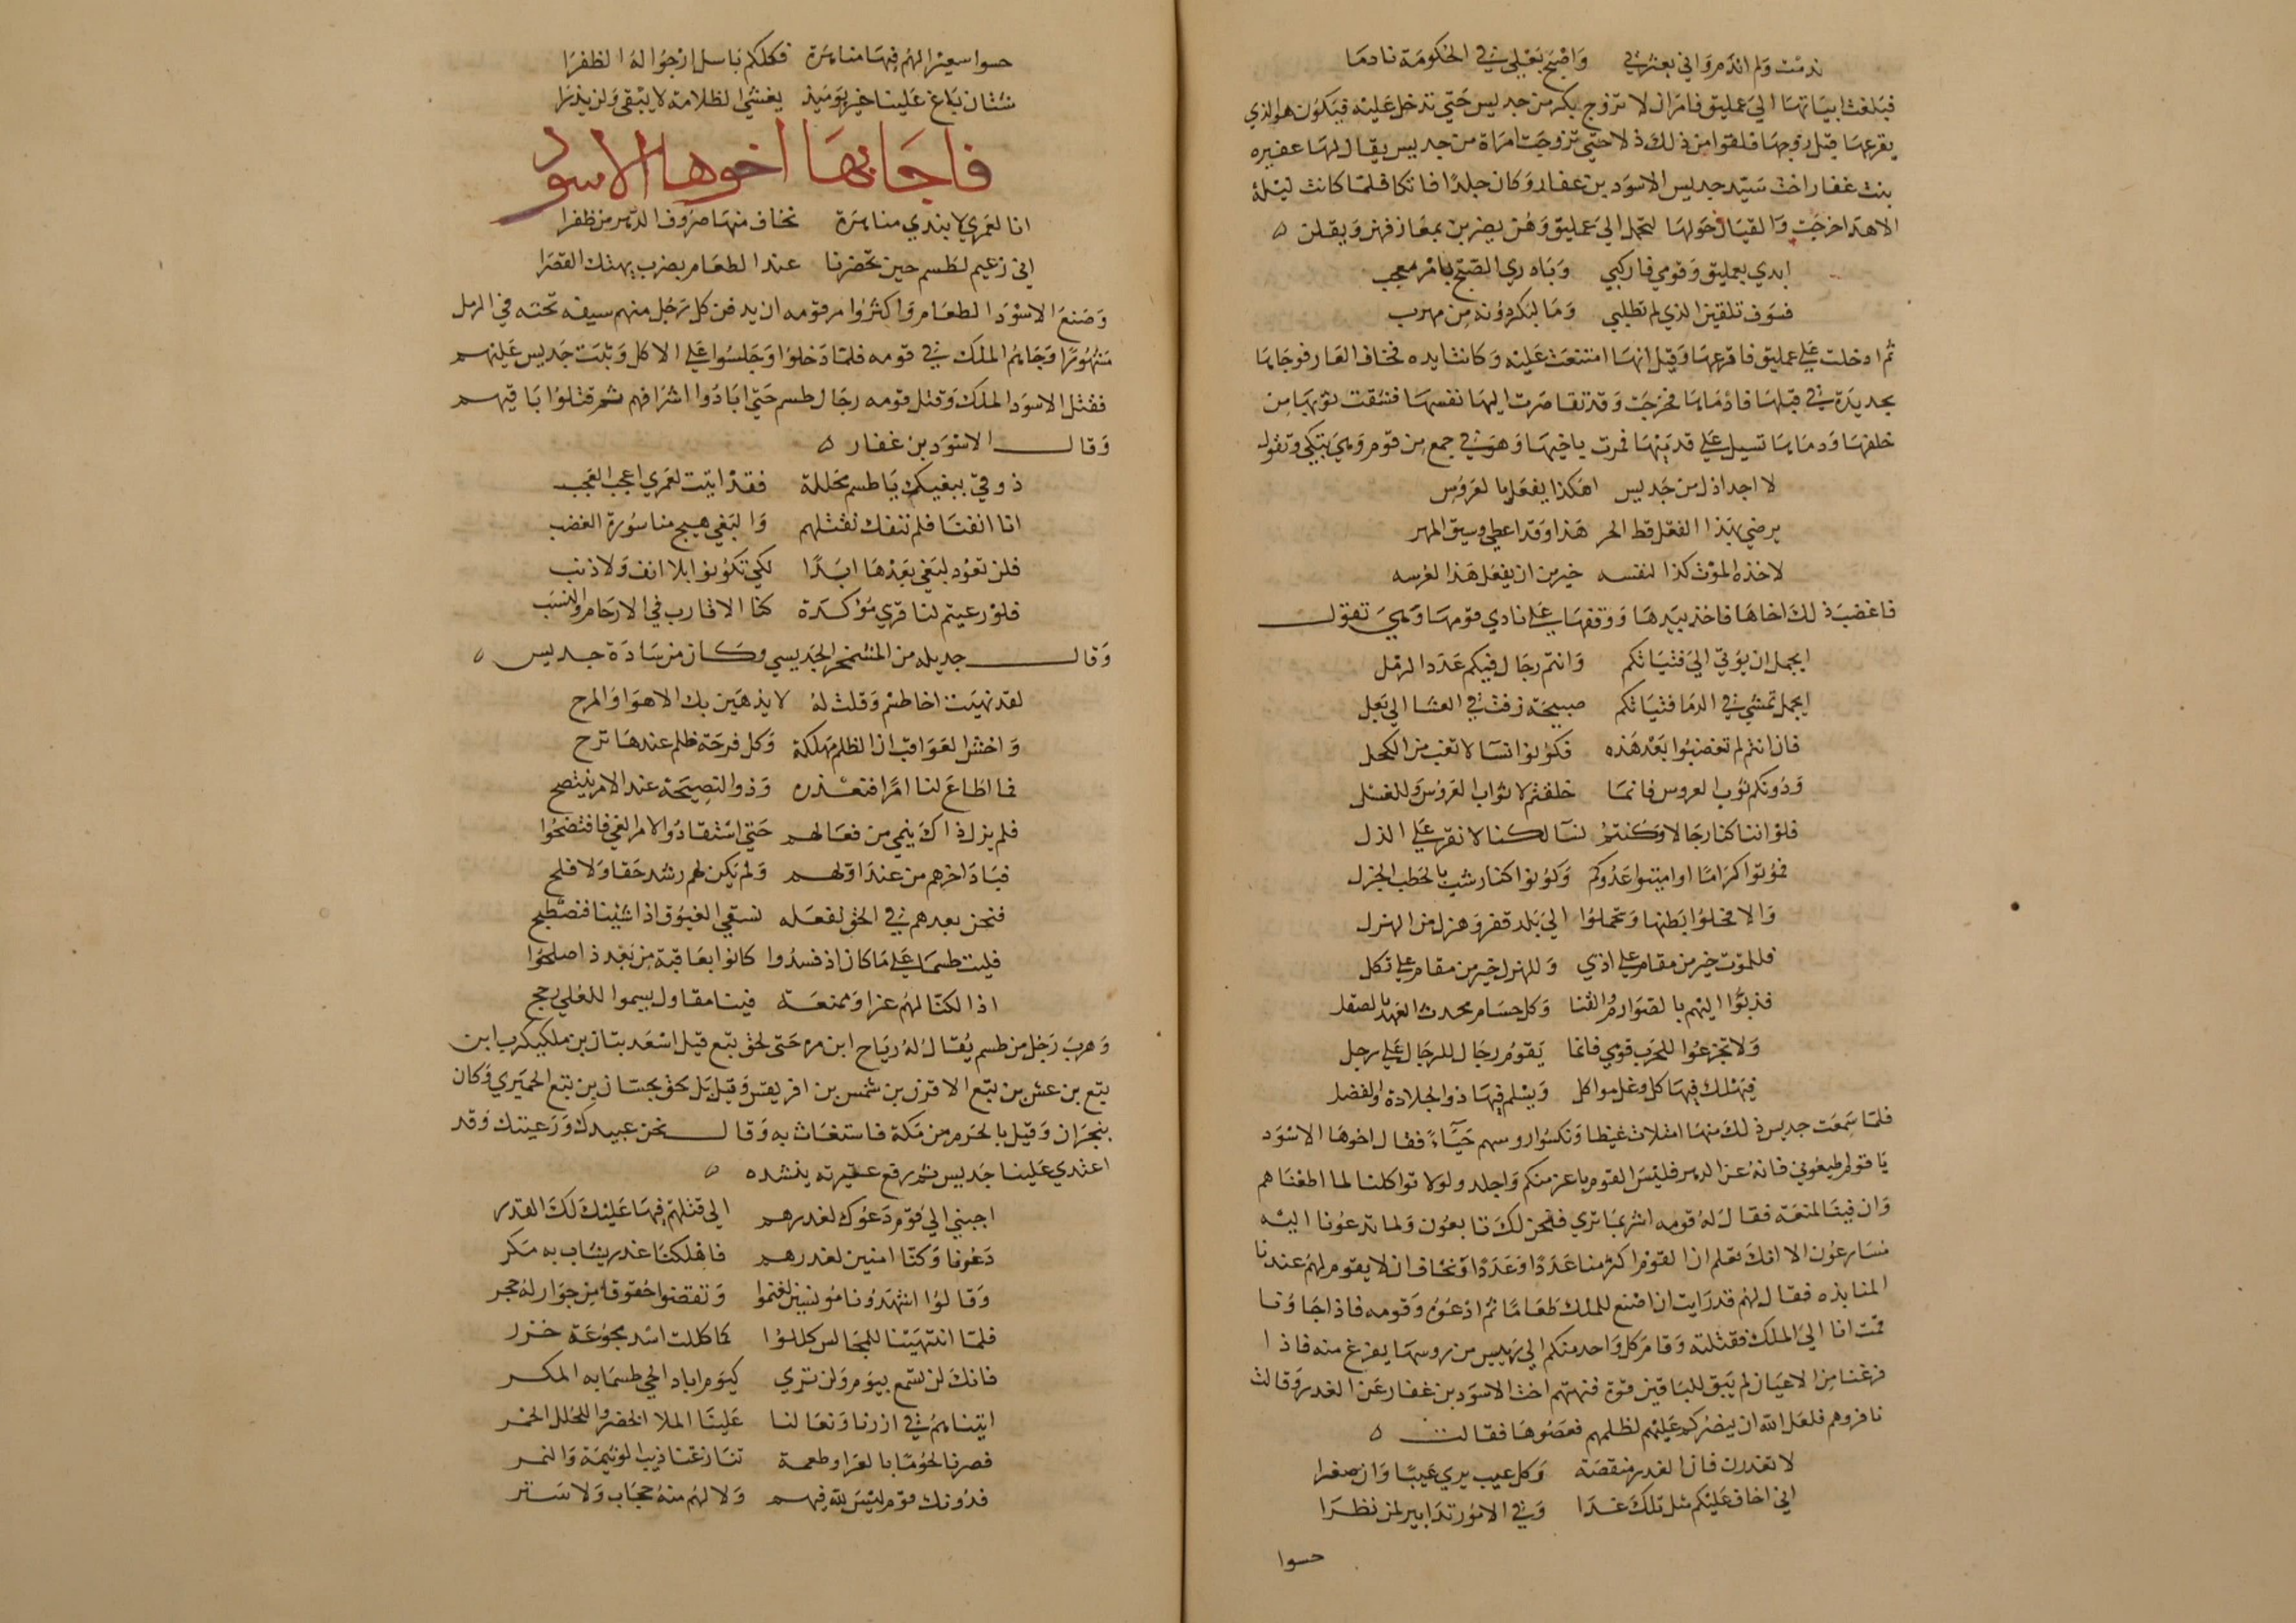 ندمت ولم اندم واني بعثرتي وأصبح بعلي في الحكومة نادما
فبلغت ابياتها الي عمليق فامر ان لا تزوج بكر من جديس حتي تدخل عليه فيكون هو الذي
يقرعها قبل زوجها فلقوا من ذلك ذلا حتي تزوجت امراة من جديس يقال لها عفيره
بنت غفار اخت سيد جديس الاسود بن غفار وكان جلدا فاتكا فلما كانت ليلة
الاهدا خرجت والقيان حولها لتحمل الي عمليق وهن يضربن بمعازفهن ويقلن ه
ابدي بعمليق وقومي فاركبي وبادري الصبح بامر معجب
فسوف تلقين الذي لم تطلبي وما لبكر دونه من مهرب
ثم ادخلت علي عمليق فاقرعها وقيل انها امتنعت عليه وكانت ايده فخاف العار فوجاها
بحديدة في قبلها فادماها فخرجت وقد تقاصرت اليها نفسها فشقت ثوبها من
خلفها ودماها تسيل علي قدميها فمرت باخيها وهو في جمع من قومه وهي تبتكي وتقول
لا اجد اذل من جديس اهكذا يفعل بالعروس
يرضي بهذا الفعل قط الحر هذا وقد اعطي وسيق المهر
لاخذه الموت كذا لنفسه خير من ان يفعل هذا لعرسه
فاغضب ذلك اخاها فاخذ بيدها ووقفها علي نادي قومها وهي تقول
ايجمل ان يؤتي الي فتياتكم وانتم رجال فيكم عدد الرمل
ايجمل تمشي في الدما فتياتكم صبيحة زفت في العشا الي بعل
فان انتم لم تغضبوا بعد هذه فكونوا نسآ لا تغب من الكحل
ودونكم ثوب العروس فانما خلقتم لاثواب العروس وللغسل
فلو اننا كنا رجالا وكنتم نسآ لكنا لا نقر علي الذل
فموتوا كراما او اميتوا عدوكم وكونوا كنار شب بالحطب الجزل
والا فخلوا بطنها وتحملوا الي بلد قفر وهزل من الهزل
فللموت خير من مقام علي اذي وللهزل خير من مقام علي ثكل
فدبوا اليهم بالصوارم والقنا وكل حسام محدث العهد بالصقل
ولا تجزعوا للحرب قومي فانما يقوم رجال للرجال علي رجل
فيهلك فيها كل وغل مواكل ويسلم فيها ذو الجلادة والفضل
فلما سمعت جديس ذلك منها امتلات غيظا ونكسوا روسهم حيآء فقال اخوها الاسود
يا قوم اطيعوني فانه عز الدهر فليس القوم باعز منكم واجلد ولولا تواكلنا لما اطعناهم
وان فينا لمنعة فقال له قومه اشر بما تري فنحن لك تابعون ولما تدعونا اليه
مسارعون الا انك تعلم ان القوم اكثر منا عددا وعددا ونخاف ان لا يقوم لهم عندنا
المنابذه فقال لهم قد رايت ان اصنع للملك طعاما ثم ادعوه وقومه فاذا جاونا
قمت انا الي الملك فقتلته وقام كل واحد منكم الي رييس من روسها يفرغ منه فاذا
فرغنا من الاعيان لم يبق للباقين قوة فنهتهم اخت الاسود بن غفار عن الغدر وقالت
نافروهم فلعل الله ان ينصركم عليهم لظلمهم فعصوها فقالت ه
لا تغدرن فان الغدر منقصة وكل عيب يري عيبا وان صغرا
اني اخاف عليكم مثل تلك غدا وفي الامور تدابير لمن نظرا
حسوا
حسوا سعيرا لهم فيها مناهزة فكلكم باسل ارجوا له الظفرا
شتان باغ علينا خير يوميذ يغشي الظلامة لا يبقي ولن يذرا
فاجابها اخوها الاسود
انا لعمري لا نبدي مناهزة نخاف منها صروف الدهر من ظفرا
اني زعيم لطسم حين تحضرنا عند الطعام بضرب يهتك القصرا
وصنع الاسود الطعام واكثر وامر قومه ان يدفن كل رجل منهم سيفه تحته في الرمل
مشهورا وجاهم الملك في قومه فلما دخلوا وجلسوا علي الاكل وثبت جديس عليهم
فقتل الاسود الملك وقتل قومه رجال طسم حتي ابادوا اشرافهم ثم قتلوا باقيهم
وقال الاسود بن غفار ه
ذوقي ببغيك يا طسم مجللة فقد اتيت لعمري اعجب العجب
انا انفنا فلم ننفك نقتلهم والبغي هيج منا سورة الغضب
فلن تعود لبغي بعدها ابدا لكي تكونوا بلا انف ولا ذنب
فلو رعيتم لنا قربي مؤكدة كنا الاقارب في الارحام والنسب
وقال جديله من المشمخر الجديسي وكان من سادة جديس ه
لقد نهيت اخا طسم وقلت له لا يذهبن بك الاهوا والمرح
واخش العواقب ان الظلم مهلكة وكل فرحة ظلم عندها ترح
فما اطاع لنا امرا فنعذره وذو النصيحة عند الامر ينتصح
فلم يزل ذاك ينمي من فعالهم حتي استقادوا لامر الغي فافتضحوا
فباد اخرهم من عند اولهم ولم يكن لهم رشد حقا ولا فلح
فنحن بعدهم في الحق نفعله نسقي الغبوق اذا شئنا فنصطبح
فليت طسما علي ما كان اذ فسدوا كانوا بعاقبة من بعد ذا صلحوا
اذا لكنا لهم عزا وممنعة فينا مقاول يسموا للعلي رجح
وهرب رجل من طسم يقال له رياح ابن مره حتي لحق بتبع قيل اسعد بتان بن ملكيكرب ابن
تبع بن عش بن تبع الاقرن بن شمس بن افريقس وقيل بل لحق بحسان بن تبع الحميري وكان
بنجران وقيل بالحرم من مكة فاستغاث به وقال نحن عبيدك ورعيتك وقد
اعتدي علينا جديس ثم رفع عقيرته ينشده ه
اجبني الي قوم دعوك لغدرهم الي قتلهم فيها عليك لك القدر
دعونا وكنا امنين لغدرهم فاهلكنا غدر يشاب به مكر
وقالوا اشهدونا مونسين لتنعموا وتقضوا حقوقا من جوار له حجر
فلما انتهينا للمجالس كللوا كما كللت اسد مجوعة خزر
فانك لن تسمع بيوم ولن تري كيوم اباد الحي طسما به المكر
اتيناهم في ازرنا ونعالنا علينا الملا الخضر والحلل الحمر
فصرنا لحوما بالعرا وطعمة تنازعنا ذيب الوثيمة والنمر
فدونك قوم ليس لله فيهم ولا لهم منه حجاب ولا ستر